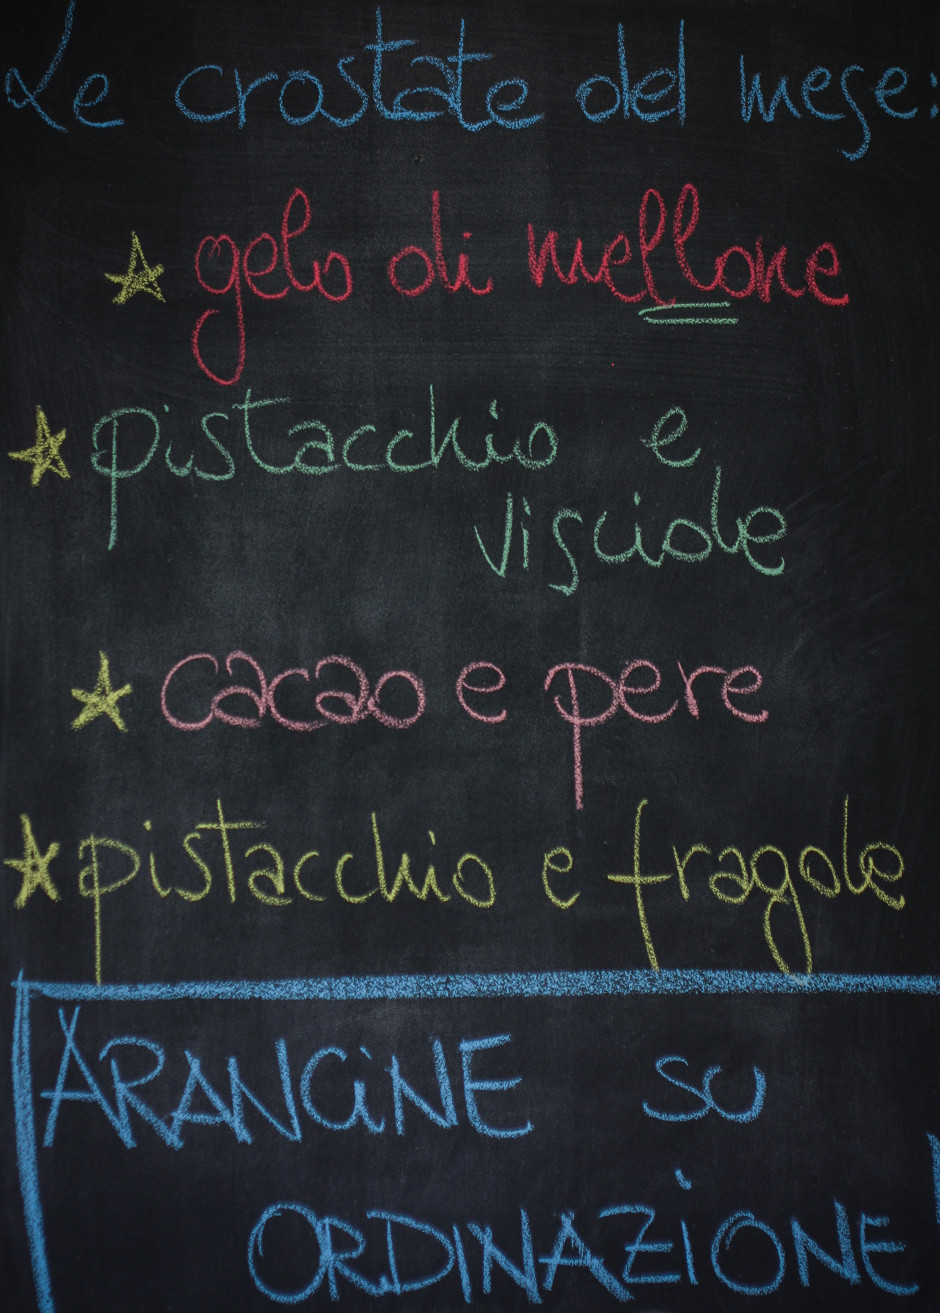 Le crostate del mese:
gelo di mellone
pistacchio e
visciole
cacao e pere
pistacchio e fragole
ARANCiNE SU
ORDINAZiONE